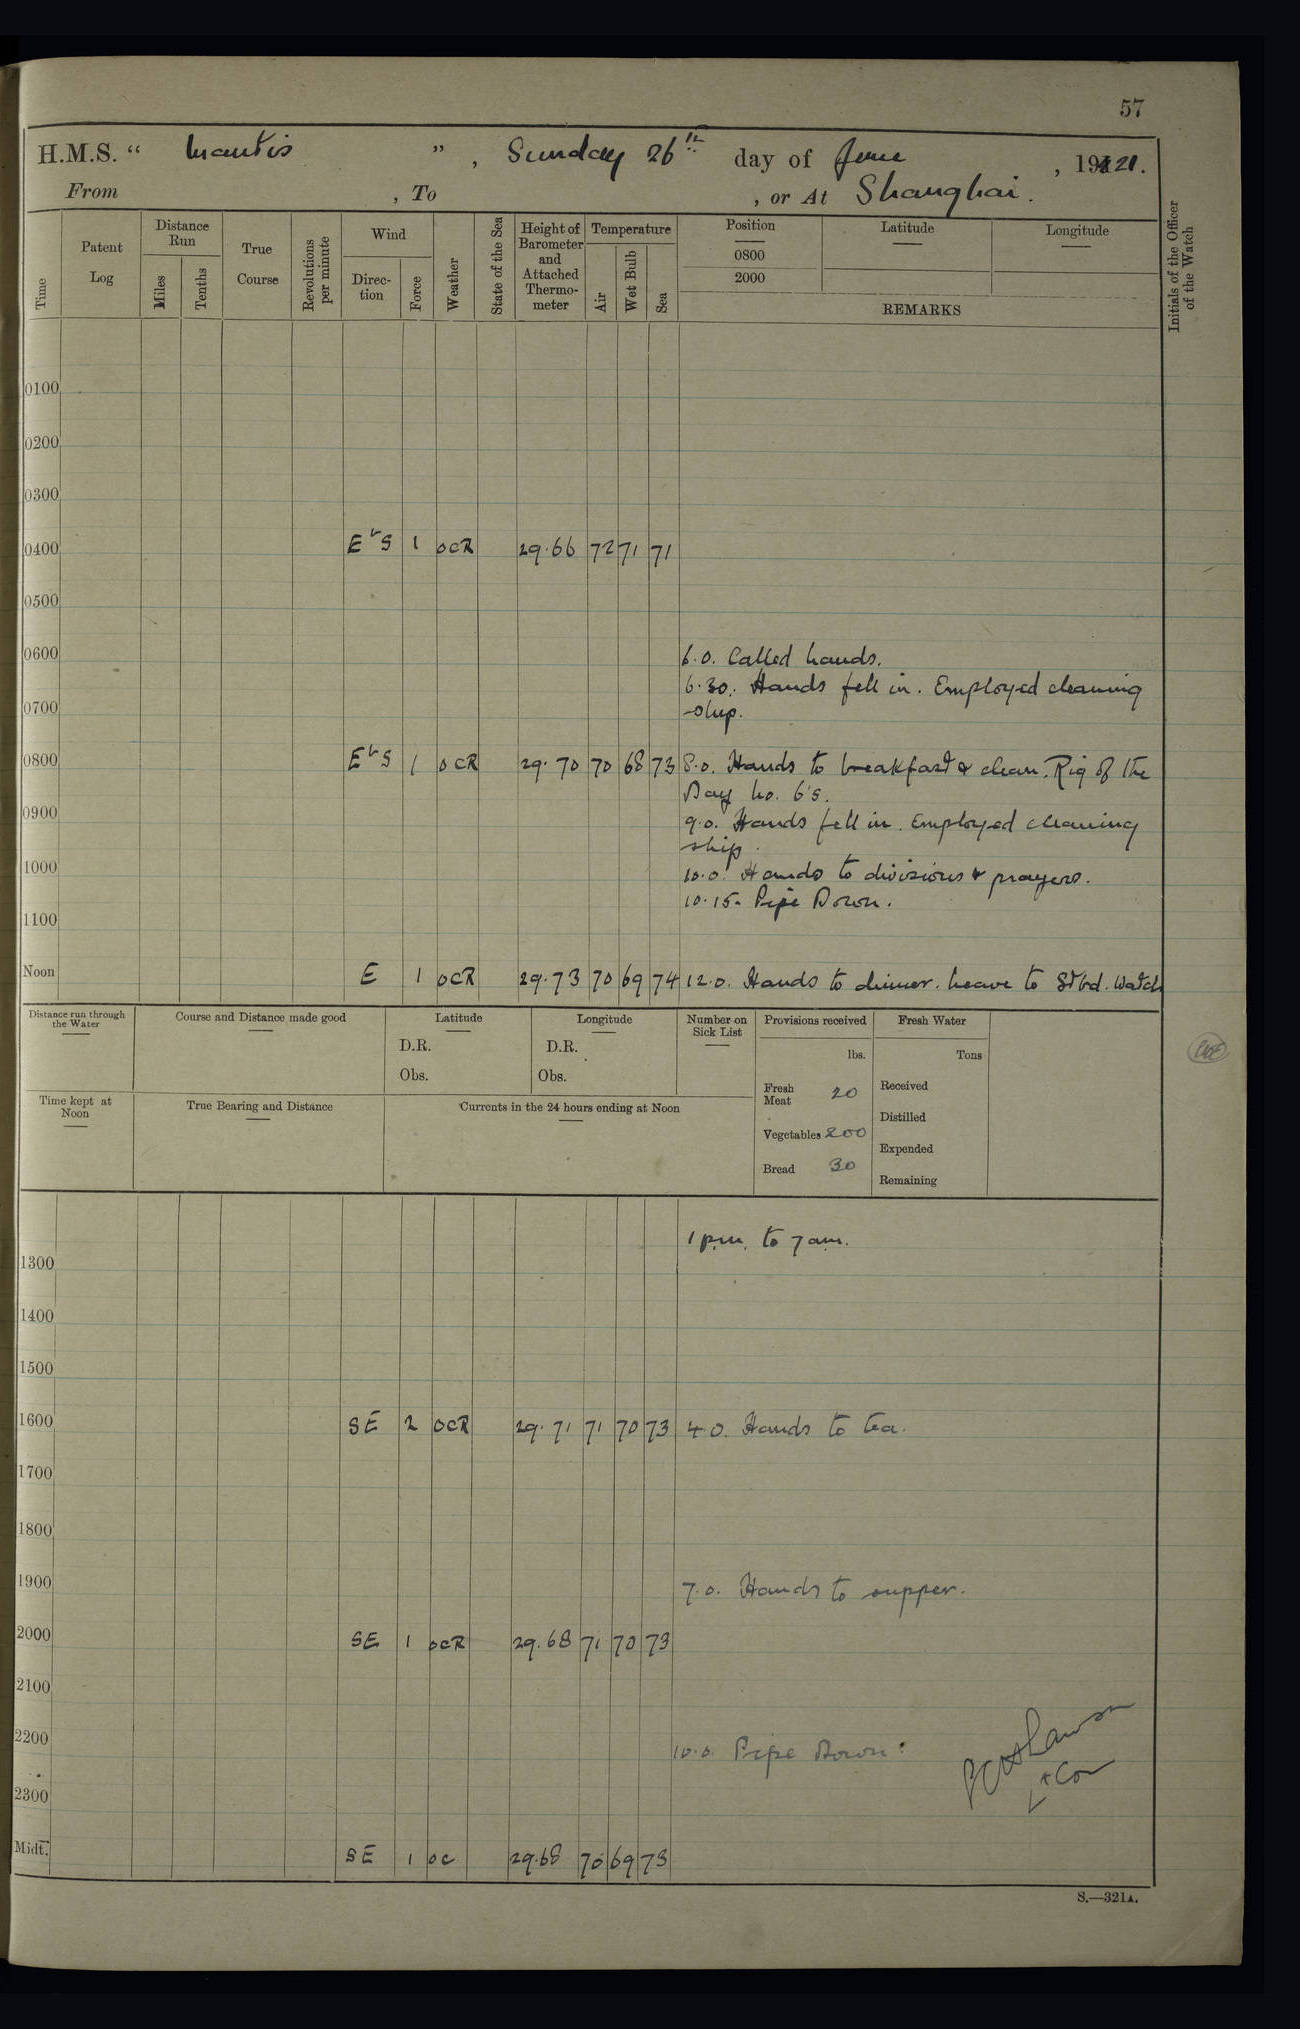 57
H.M.S. “ Mantis ” , Sunday 26th day of June , 1921.
From , To , or At Shanghai.
Time
Patent Log
Distance Run
Miles
Tenths
True Course
Revolutions per minute
Wind
Direc- tion
Force
Weather
State of the Sea
Height of Barometer and Attached Thermo- meter
Temperature
Air
Wet Bulb
Sea
Position
0800
2000
Latitude
Longitude
REMARKS
Initials of the Officer of the Watch
0100
0200
0300
0400 E b S 1 OCR 29.66 72 71 71
0500
0600 6.0. Called hands.
6.30. Hands fell in. Employed cleaning
0700 ship.
0800 E b S 1 OCR 29.70 70 68 73 8.0. Hands to breakfast & clean. Rig of the
Day No. 6's.
0900 9.0. Hands fell in. Employed cleaning
ship.
1000 10.0. Hands to divisions & prayers.
10.15. Pipe Down.
1100
Noon E 1 OCR 29.73 70 69 74 12.0. Hands to dinner. Leave to Stbd. Watch
Distance run through the Water
Course and Distance made good
Latitude
D.R.
Obs.
Longitude
D.R.
Obs.
Number on Sick List
Provisions received
lbs.
Fresh Meat 20
Vegetables 200
Bread 30
Fresh Water
Tons
Received
Distilled
Expended
Remaining
Time kept at Noon
True Bearing and Distance
Currents in the 24 hours ending at Noon
1 p.m. to 7 am.
1300
1400
1500
1600 SE 2 OCR 29.71 71 70 73 4.0. Hands to tea.
1700
1800
1900 7.0. Hands to supper.
2000 SE 1 OCR 29.68 71 70 73
2100
2200 10.0. Pipe Down.
2300
Midt. SE 1 OC 29.68 70 69 73
S.—321A.